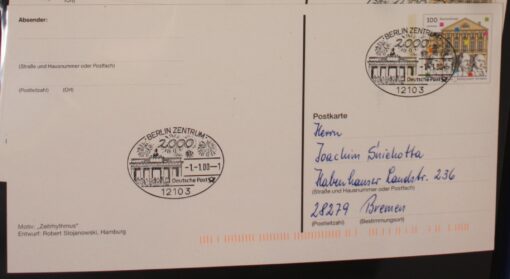 Absender:
(Straße und Hausnummer oder Postfach)
(Postleitzahl) (Ort)
BERLIN ZENTRUM
2000
-1.-1.00--1
Deutsche Post
12103
Motiv: „Zeitrhythmus“
Entwurf: Robert Stojanowski, Hamburg
100
BERLIN ZENTRUM
2000
-1.-1.00-
Deutsche Post
12103
Postkarte
Herrn
Joachim
Habenhauser Landstr. 236
(Straße und Hausnummer oder Postfach)
28279 Bremen
(Postleitzahl) (Bestimmungsort)